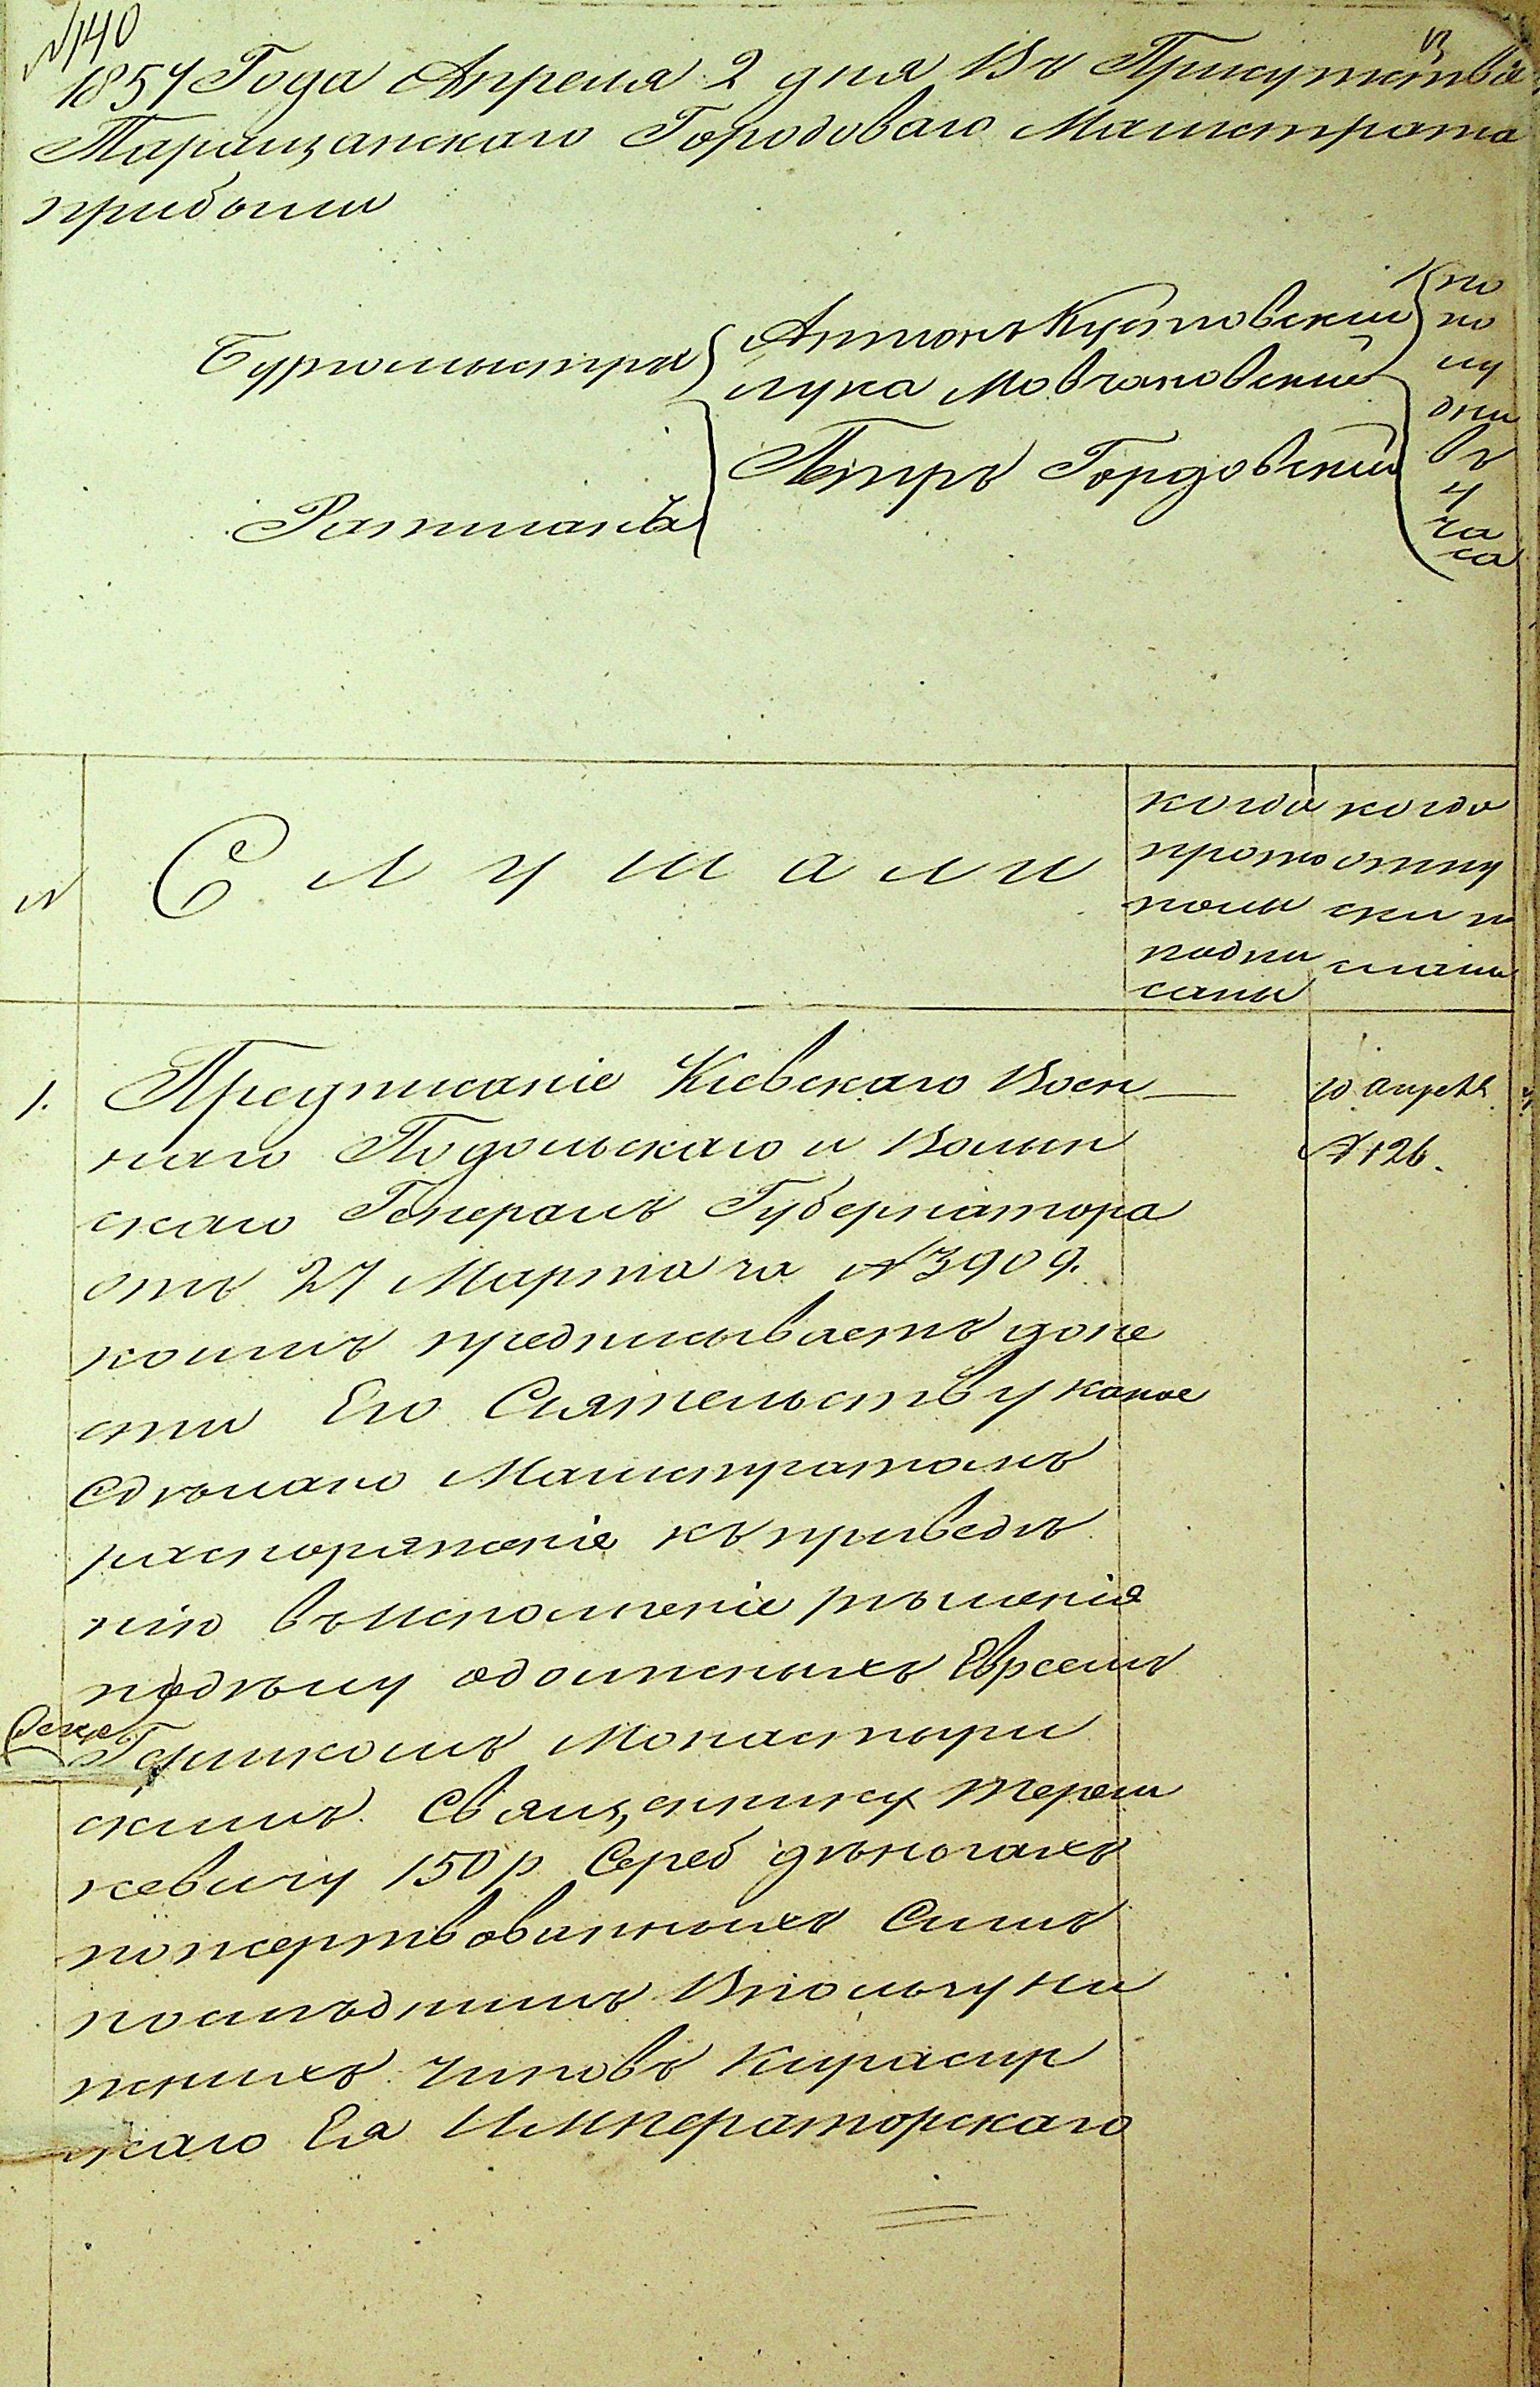 № 140
1857 Года Апреля 2 дня Въ Присутствіе
Таращанскаго Городоваго Магистрата
прибыли
Бургомыстры
Антонъ Кустовскій
Лука Мовчановскій
Ратманъ
Петръ Гордовскій
по
по
лу
дни
въ
4
ча
са
№
Слушали
когда
прото
колы
подпи
саны
когда
отпу
ски п
сланы
1. Предписаніе Кіевскаго Воен
наго Подольскаго и Волын
скаго Генералъ Губернатора
отъ 27 Марта за № 3909.
коимъ предписываетъ доне
сти Его Сіятельству какое
Сдѣлано Магистратомъ
распоряженіе къ приведѣ
нію въ исполненіе рѣшенія
подѣлу одолжныхъ Евреемъ
Гершкомъ Монастыри
скимъ Священнику Тереш
кевичу 150 р Сереб дѣногахъ
пожертвованныхъ Симъ
послѣднимъ Впользу ни
жнихъ чиновъ Кирасир
скаго Ея Императорскаго
10 апреля
№ 126.